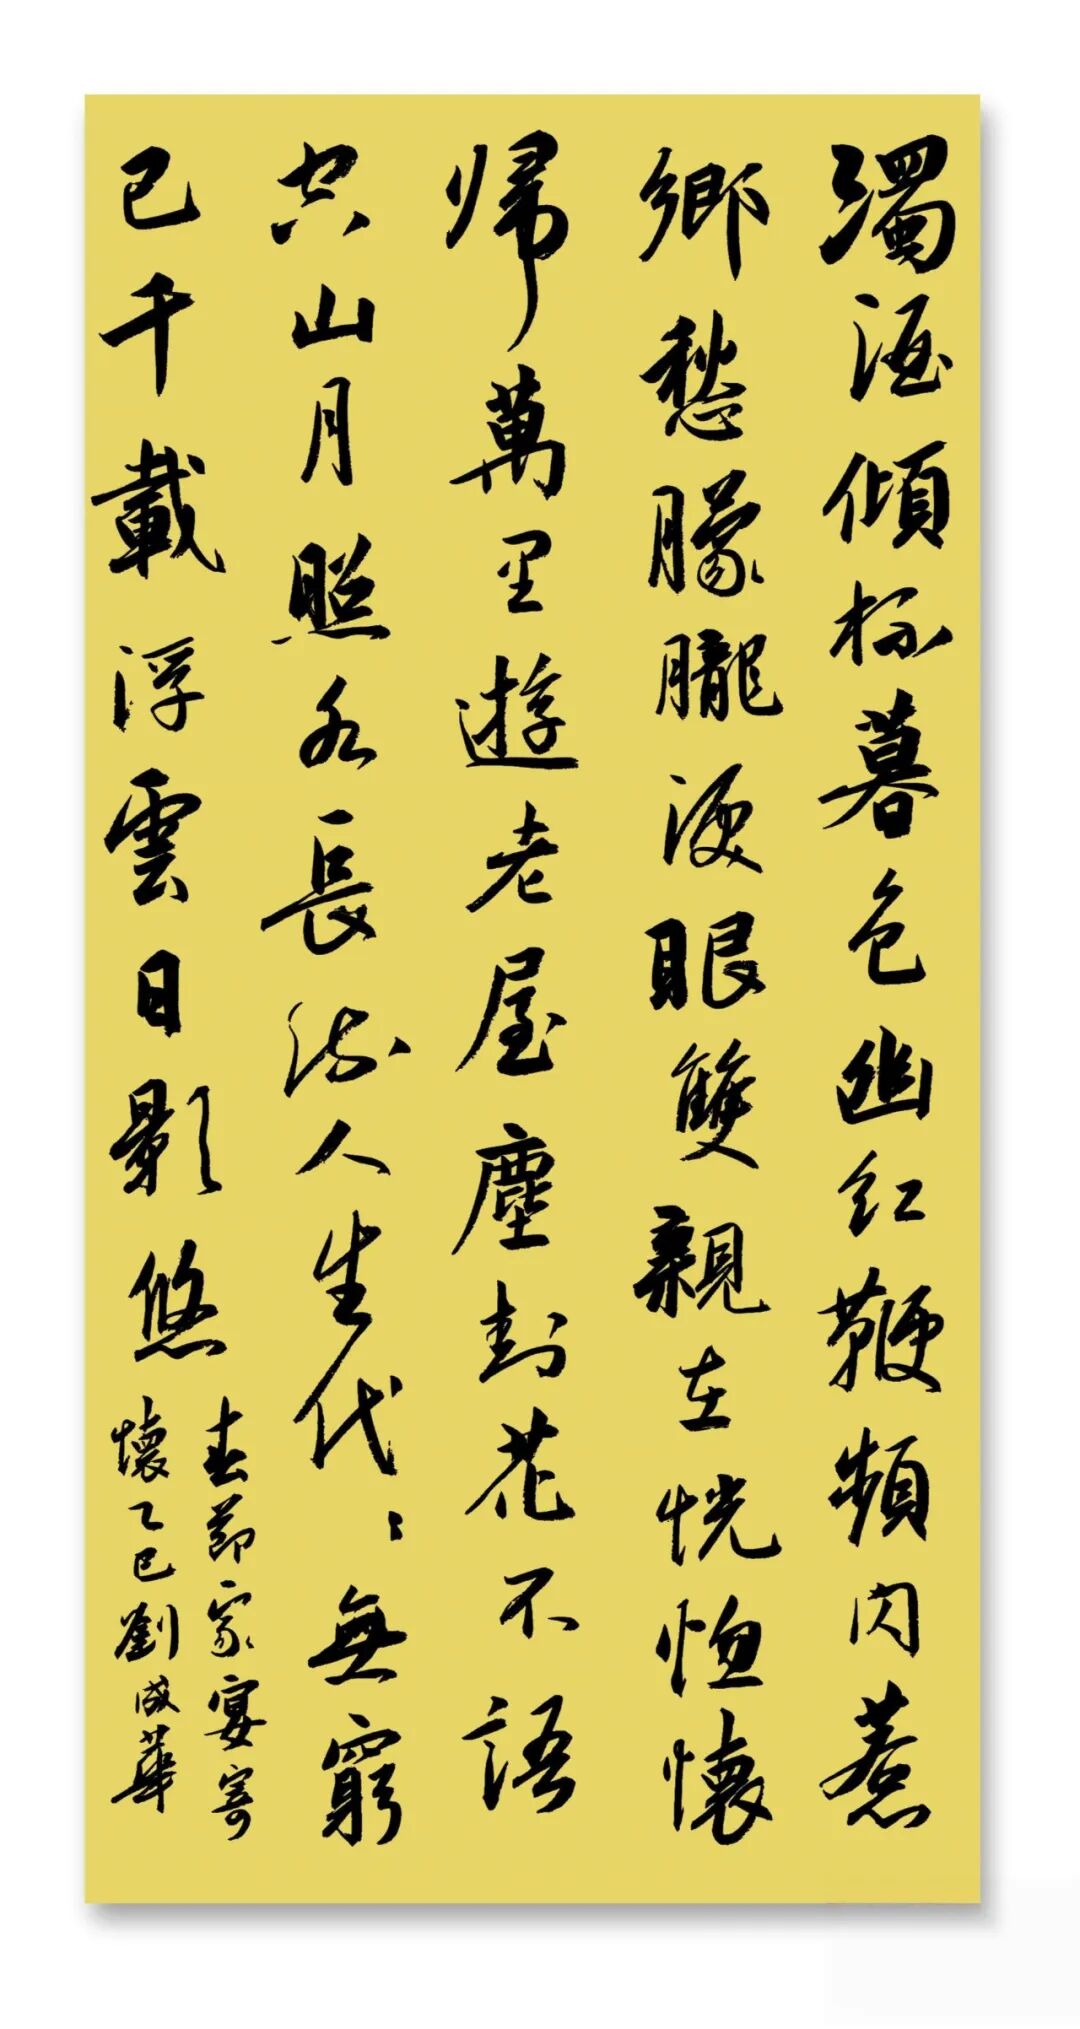 濁酒傾杯暮色幽紅鞭頻閃惹
鄉愁朦朧淚眼雙親在恍惚懷
帰萬里遊老屋塵封花不語
空山月照水長流人生代々無窮
已千載浮雲日影悠
春節家宴寄
懷乙巳劉成華